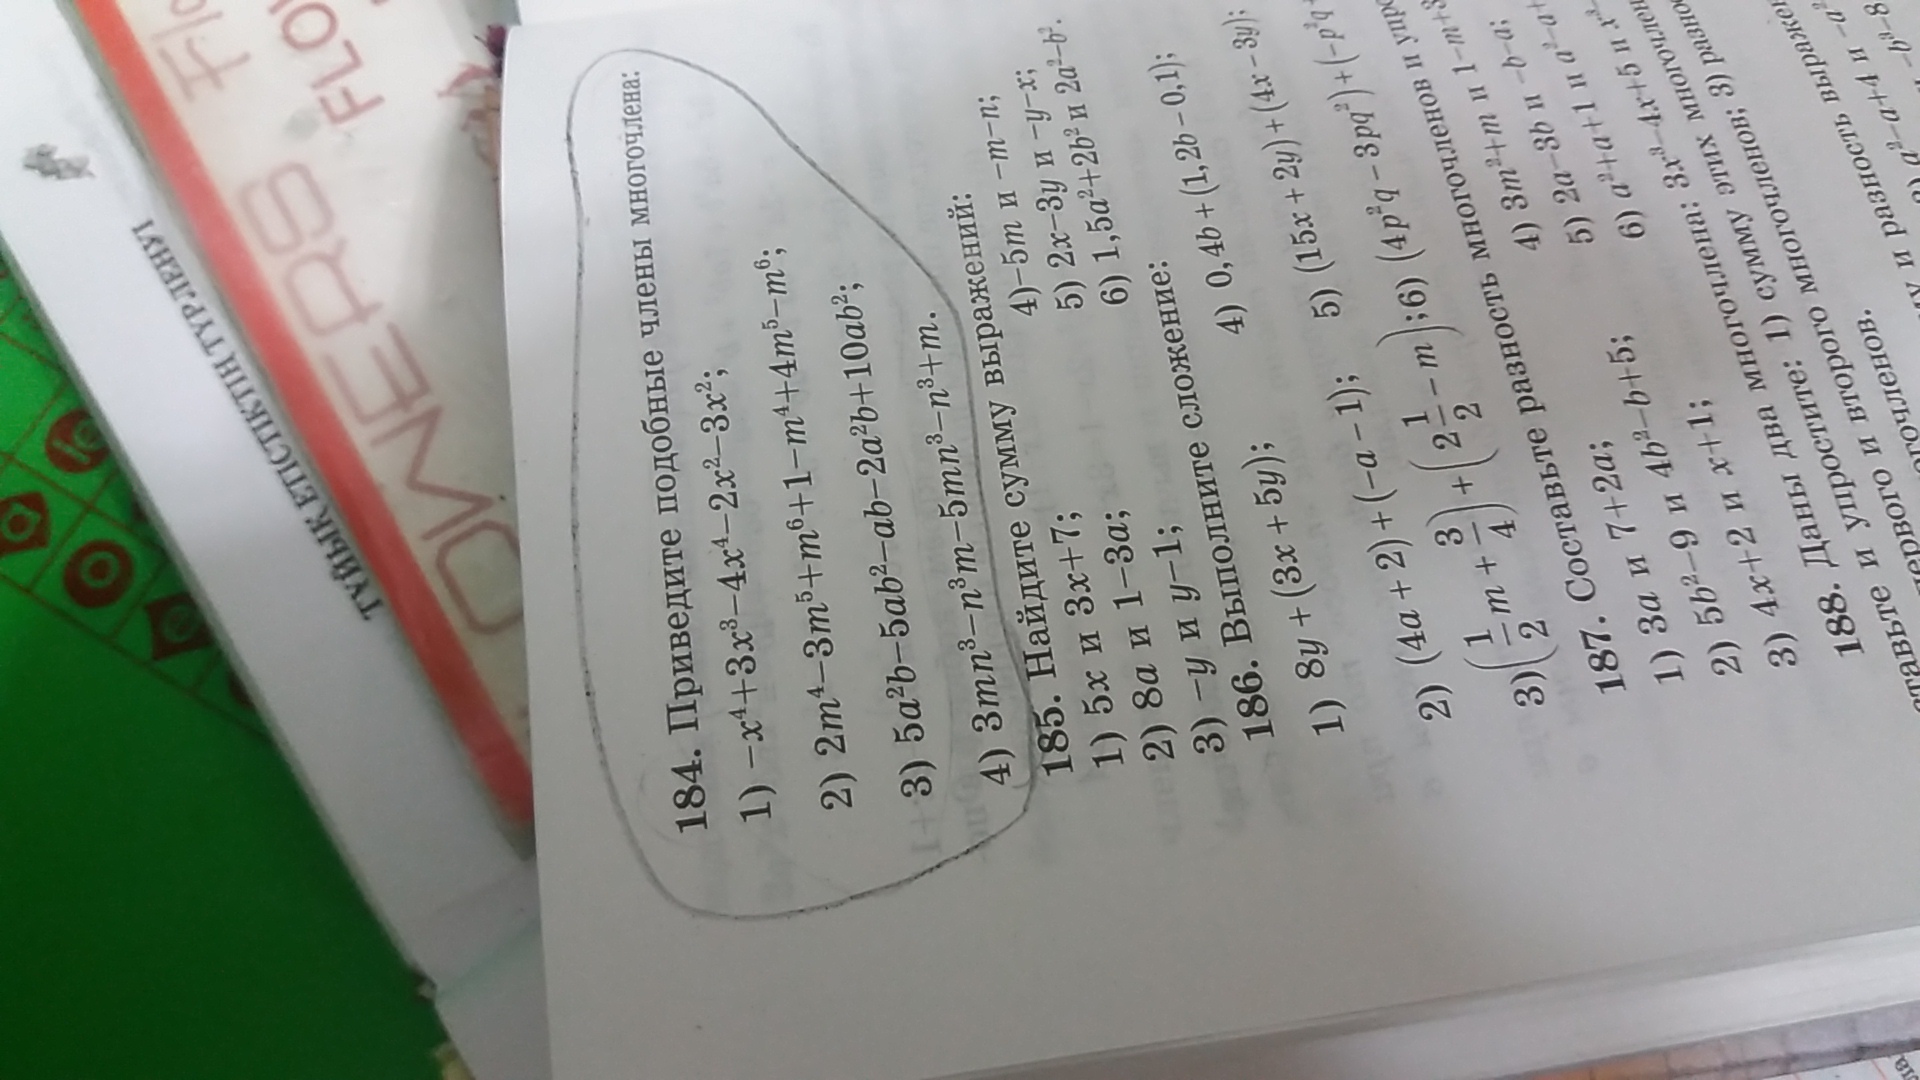 ТҰЙЫҚ ЕПІСТІКТІҢ ТҮРЛЕНУІ
FLO
OWERS
184. Приведите подобные члены многочлена:
1) −x⁴+3x³−4x⁴−2x²−3x²;
2) 2m⁴−3m⁵+m⁶+1−m⁴+4m⁵−m⁶;
3) 5a²b−5ab²−ab−2a²b+10ab²;
4) 3mn³−n³m−5mn³−n³+m.
185. Найдите сумму выражений:
1) 5x и 3x+7; 4)−5m и −m−n;
2) 8a и 1−3a; 5) 2x−3y и −y−x;
3) −y и y−1; 6) 1,5a²+2b² и 2a²−b².
186. Выполните сложение:
1) 8y+(3x+5y); 4) 0,4b+(1,2b−0,1);
2) (4a+2)+(−a−1); 5) (15x+2y)+(4x−3y);
3)(1/2 m+3/4)+(2 1/2−m); 6) (4p²q−3pq²)+(−p²q+
187. Составьте разность многочленов и упро
1) 3a и 7+2a; 4) 3m²+m и 1−m+3
2) 5b²−9 и 4b²−b+5; 5) 2a−3b и −b−a:
3) 4x+2 и x+1; 6) a²+a+1 и a²−a+
188. Даны два многочлена: 3x³−4x+5 и x³−
1) сумму этих многочлен
многочленов; 3) разнос
и упростите: 1) сумму
и упрост второго многочленов.
первого и разность выражен
a²−a+4 и −a²